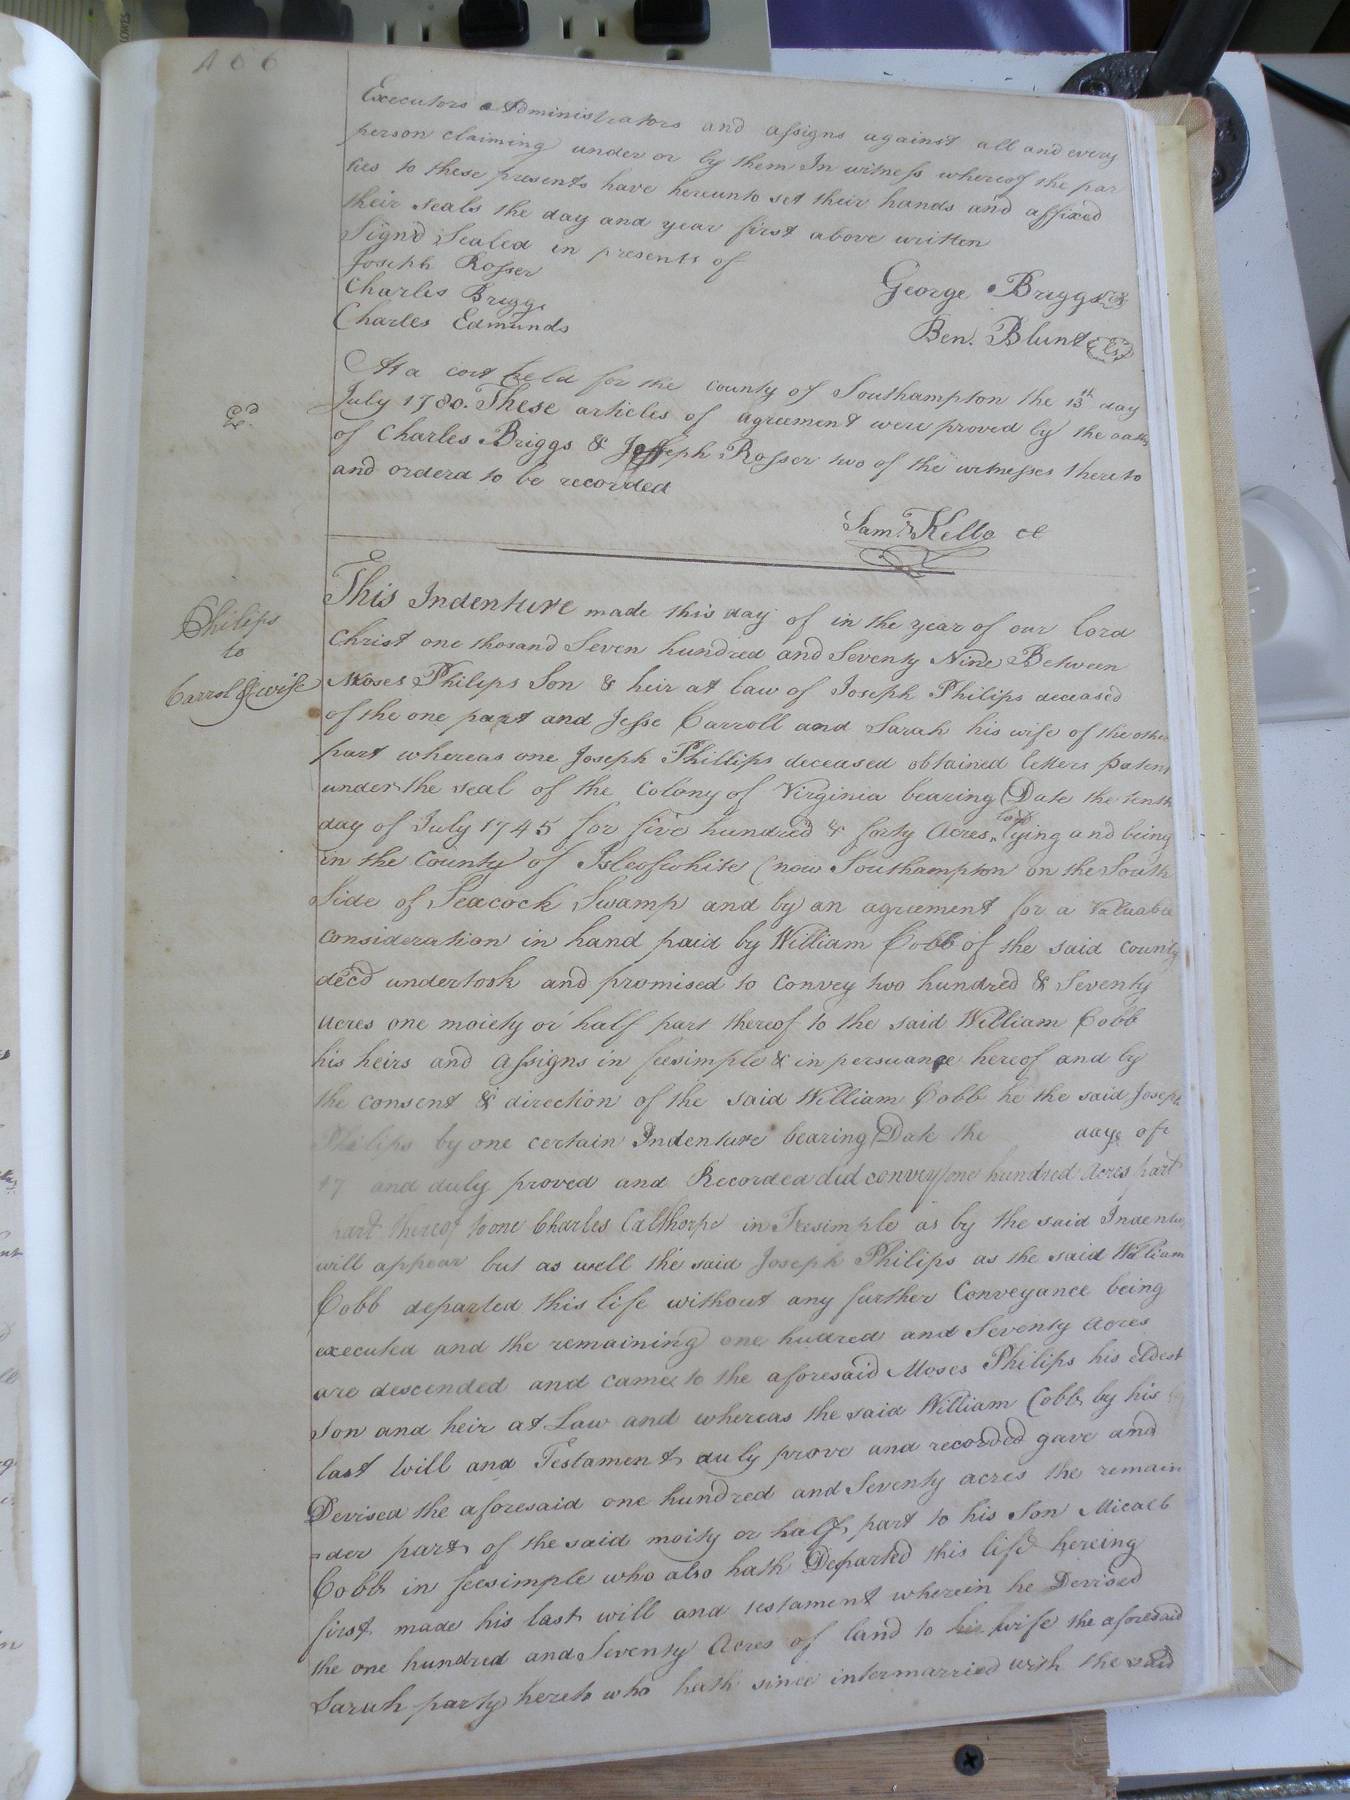 106
Executors Administrators and assigns against all and every
person claiming under or by them In witness whereof the par
ties to these presents have hereunto set their hands and affixed
their seals the day and year first above written
Sign'd Sealed in presents of
Joseph Rosser
Charles Briggs
Charles Edmunds
George Briggs
Ben. Blunt
At a cort held for the county of Southampton the 13th day
July 1780. These articles of agreement were proved by the oaths
of Charles Briggs & Joseph Rosser two of the witnesses thereto
and orderd to be recorded
Saml. Kello cc
Philips
to
Carrol & wife
This Indenture made this day of in the year of our lord
Christ one thosand Seven hundred and Seventy Nine Between
Moses Philips Son & heir at law of Joseph Philips deceased
of the one part and Jesse Carroll and Sarah his wife of the other
part whereas one Joseph Phillips deceased obtained letters patent
under the seal of the Colony of Virginia bearing Date the tenth
day of July 1745 for five hundred & forty Acres land lying and being
in the County of Isleofwhite (now Southampton on the South
Side of Seacock Swamp and by an agreement for a Valuable
consideration in hand paid by William Cobb of the said county
dec'd undertook and promised to Convey two hundred & Seventy
Acres one moiety or half part thereof to the said William Cobb
his heirs and Assigns in feesimple & in persuance hereof and by
the consent & direction of the said William Cobb he the said Joseph
Philips by one certain Indenture bearing Date the day of
17 and duly proved and Recorded did convey one hundred Acres part
part thereof to one Charles Calthorpe in Fesimple as by the said Indentu
will appear but as well the said Joseph Philips as the said William
Cobb departed this life without any further Conveyance being
executed and the remaining one hudred and Seventy Acres
are descended and came to the aforesaid Moses Philips his eldest
Son and heir at Law and whereas the said William Cobb by his
last Will and Testament duly prove and recorded gave and
Devised the aforesaid one hundred and Seventy acres the remain
=der part of the said moity or half part to his Son Micael
Cobb in feesimple who also hath Departed this life hereing
first made his last will and testament wherein he Devised
the one hundred and Seventy Acres of land to his wife the aforesaid
Sarah party hereto who hath since intermarried with the said